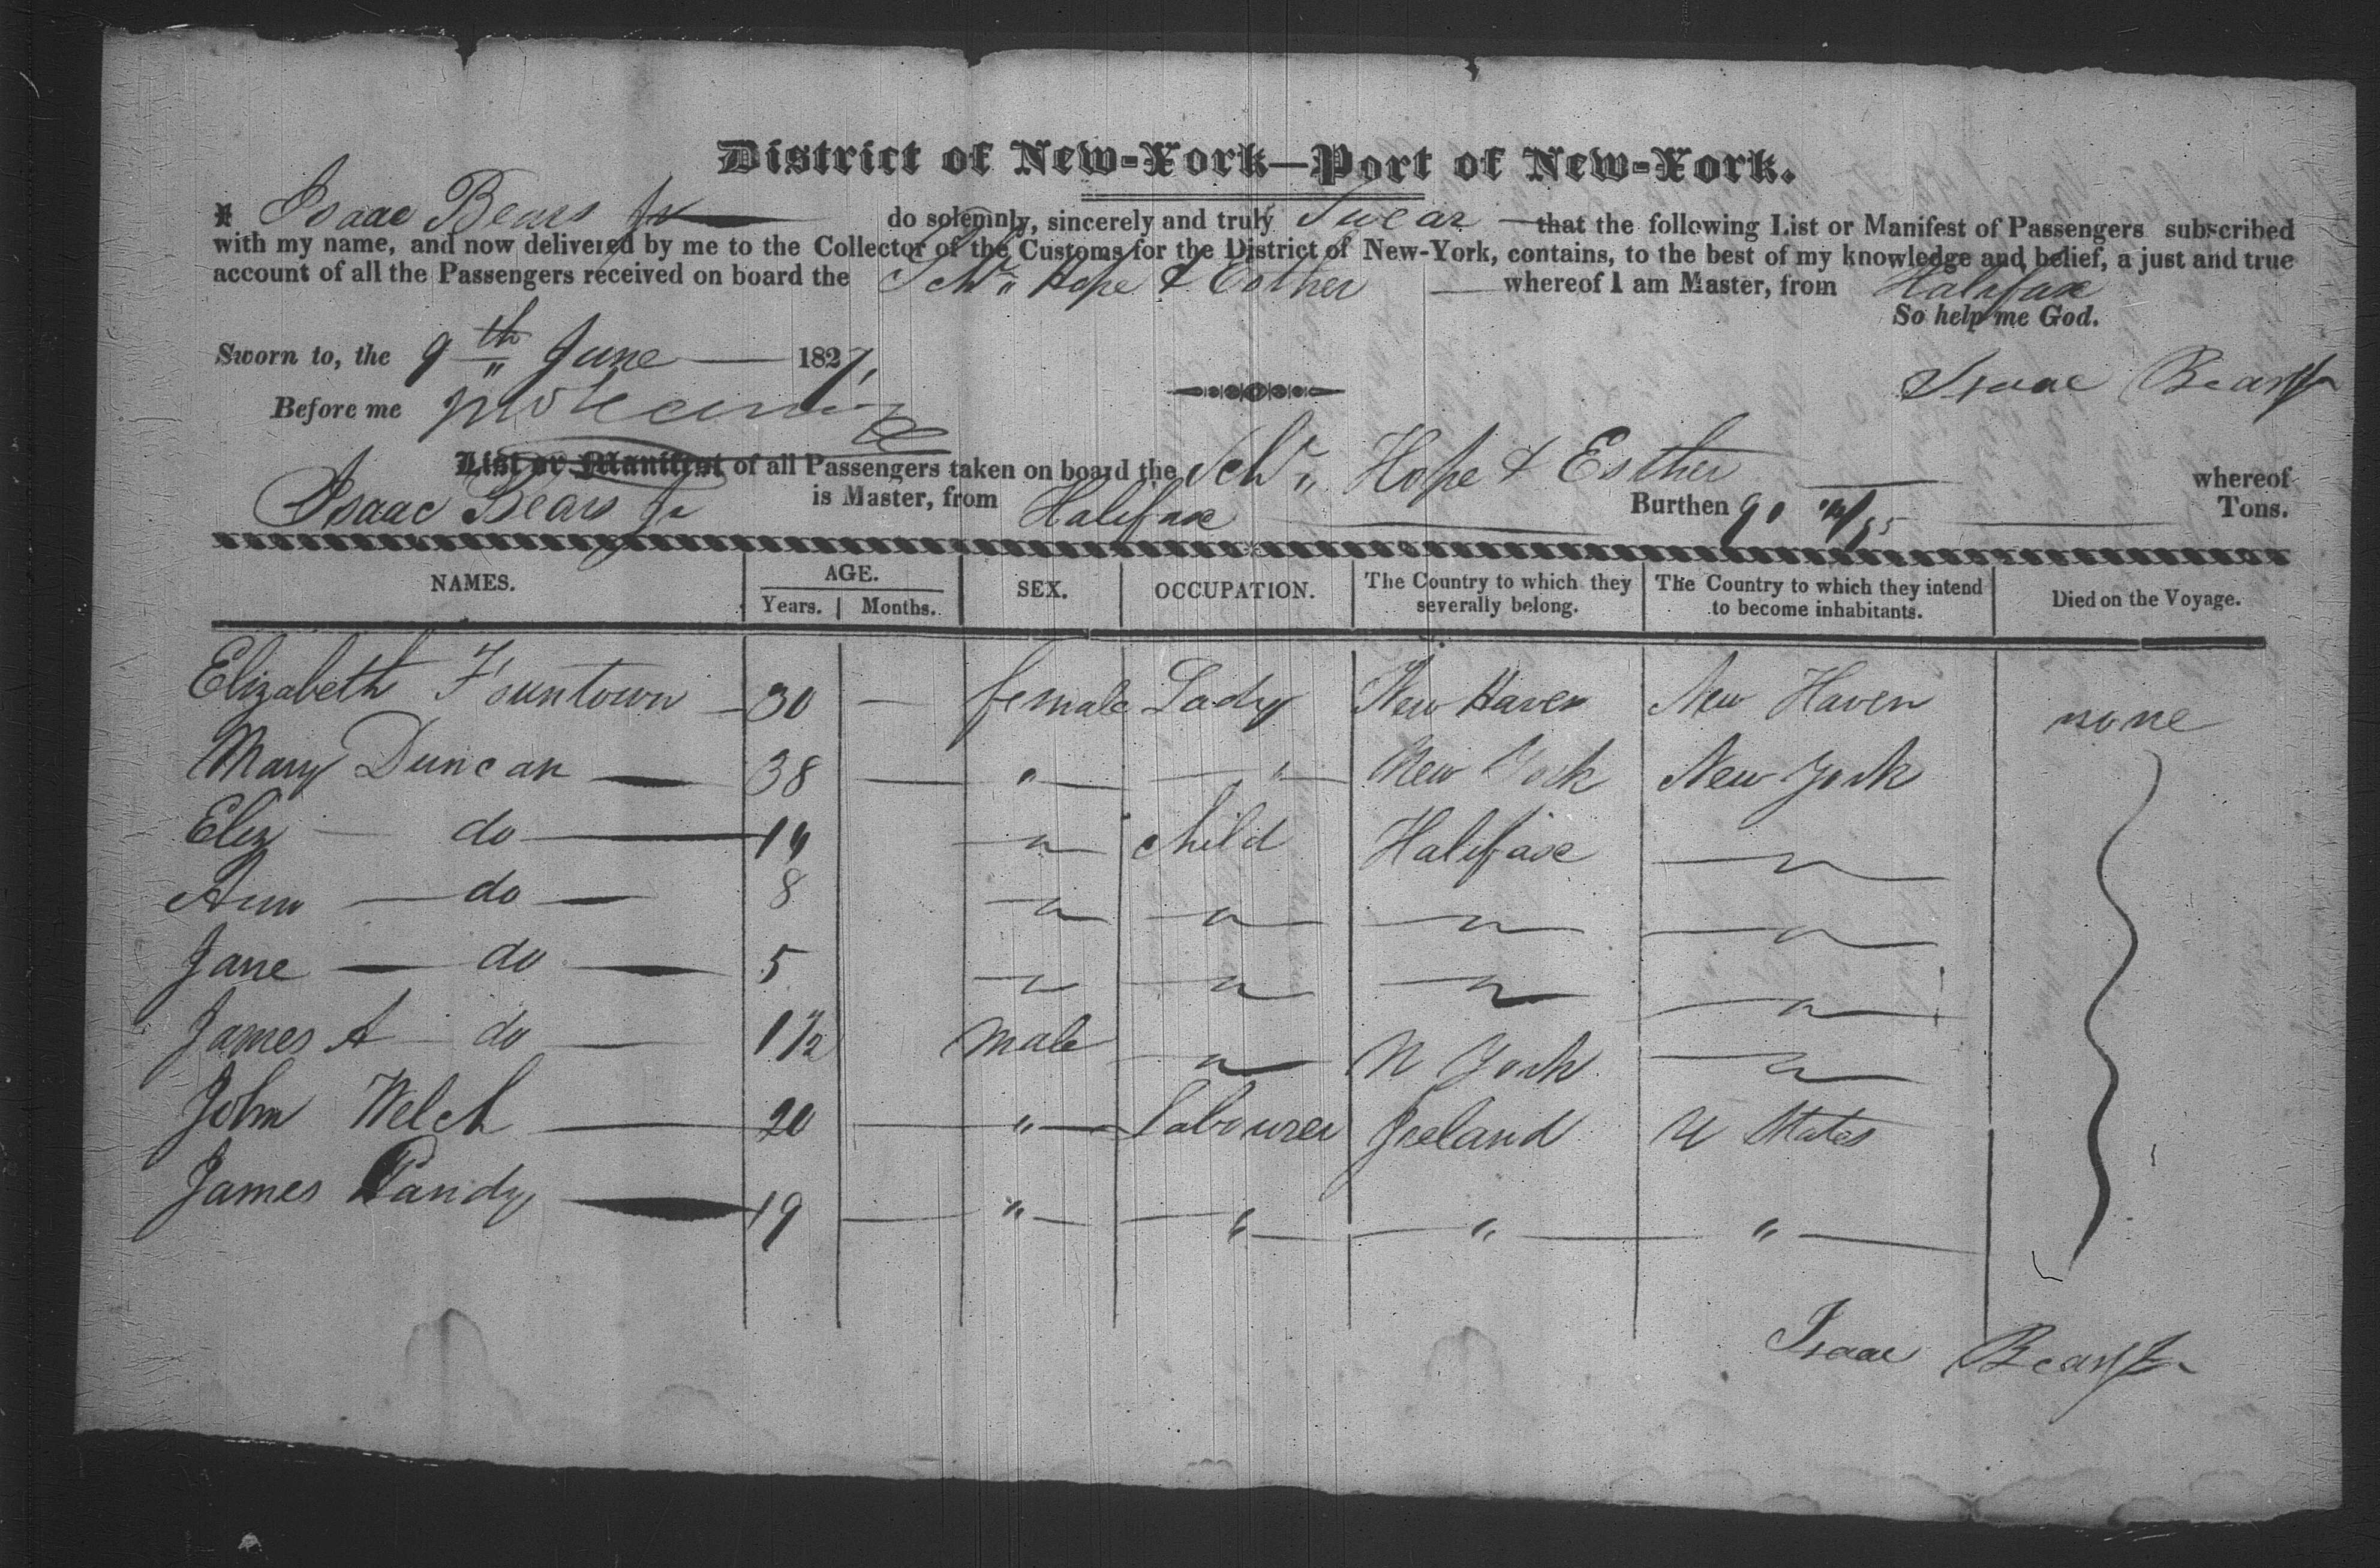 District of New-York—Port of New-York.
I Isaac Bears Jr do solemnly, sincerely and truly Swear that the following List or Manifest of Passengers subscribed
with my name, and now delivered by me to the Collector of the Customs for the District of New-York, contains, to the best of my knowledge and belief, a just and true
account of all the Passengers received on board the Schr Hope & Esther whereof I am Master, from Halifax
So help me God.
Sworn to, the 9th June 1827,
Isaac Bears Jr
Before me
List or Manifest of all Passengers taken on board the Schr Hope & Esther whereof
Isaac Bears Jr is Master, from Halifax Burthen 91 Tons.
NAMES. AGE. SEX. OCCUPATION. The Country to which they severally belong. The Country to which they intend to become inhabitants. Died on the Voyage.
Years. Months.
Elizabeth Fountown 30 — female Lady New Haven New Haven none
Mary Duncan 38 — " " New York New York
Eliz do 14 " child Halifax "
Ann do 8 " " " "
Jane do 5 " " " "
James A do 1 1/2 male " N York "
John Welch 20 — " Labourer Ireland U States
James Pandy 19 — " " " "
Isaac Bears Jr